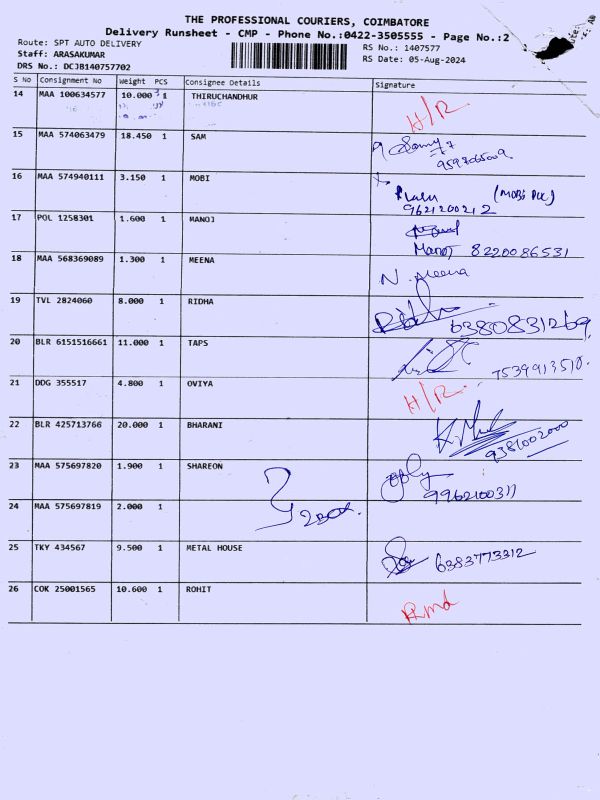 THE PROFESSIONAL COURIERS, COIMBATORE
Delivery Runsheet - CMP - Phone No.:0422-3505555 - Page No.:2
Route: SPT AUTO DELIVERY
RS No.: 1407577
Staff: ARASAKUMAR
RS Date: 05-Aug-2024
DRS No.: DCJB140757702
S No Consignment No Weight PCS Consignee Details Signature
14 MAA 100634577 10.000 1 THIRUCHANDHUR H/R
15 MAA 574063479 18.450 1 SAM
16 MAA 574940111 3.150 1 MOBI
9621200212
17 POL 1258301 1.600 1 MANOJ
Manoj 8220086531
18 MAA 568369089 1.300 1 MEENA N. Meena
19 TVL 2824060 8.000 1 RIDHA 6380831269
20 BLR 6151516661 11.000 1 TAPS 7539913510.
21 DDG 355517 4.800 1 OVIYA H/R
22 BLR 425713766 20.000 1 BHARANI 9381002000
23 MAA 575697820 1.900 1 SHAREON
24 MAA 575697819 2.000 1
25 TKY 434567 9.500 1 METAL HOUSE 6383773312
26 COK 25001565 10.600 1 ROHIT